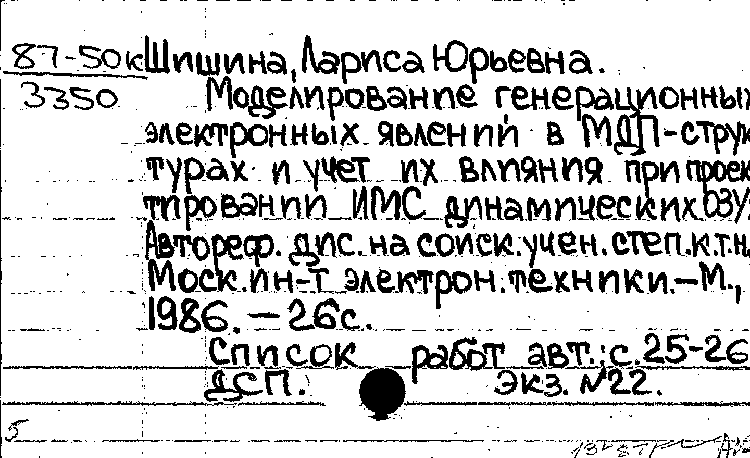 87-50к Шишина, Лариса Юрьевна.
3350 Моделирование генерационных
электронных явлений в МДП-струк
турах и учет их влияния при проек
тировании ИМС динамических ОЗУ:
Автореф. дис. на соиск. учен. степ. к.т.н.
Моск. ин-т электрон. техники.—М.,
1986. — 26с.
Список работ авт.: с. 25-26
ДСП. Экз. №22.
5